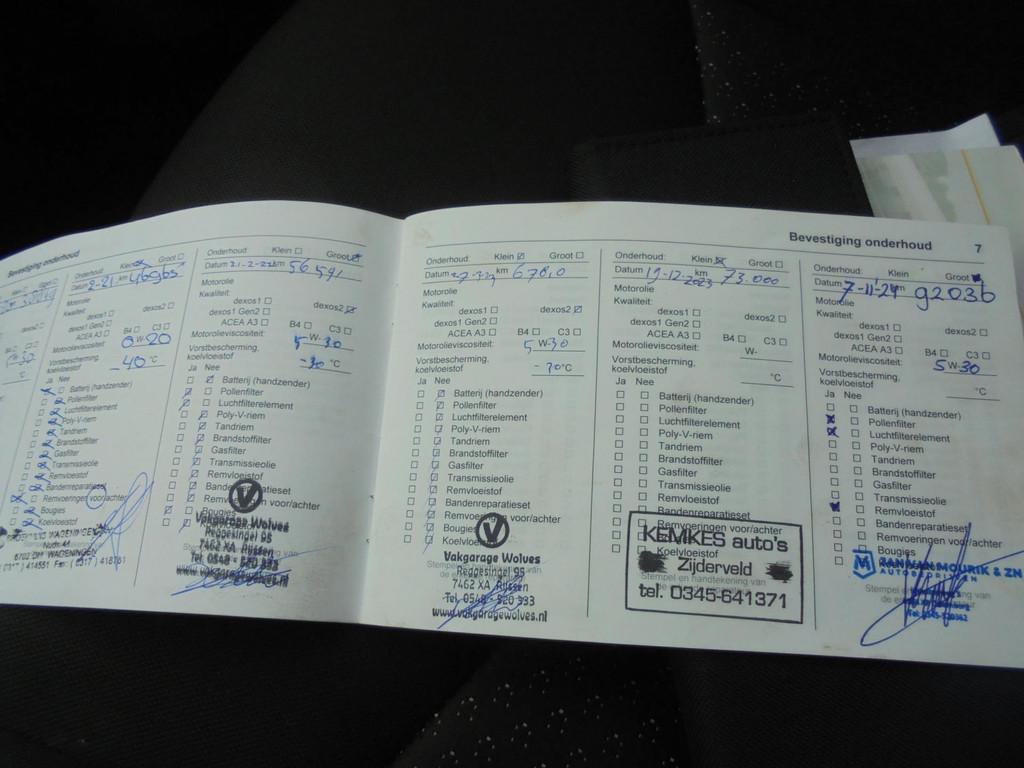 Bevestiging onderhoud
Onderhoud: Klein Groot
Datum 2-21 km 46965
Motorolie
Kwaliteit:
dexos1 dexos2
dexos1 Gen2
ACEA A3 B4 C3
Motorolieviscositeit: 0 W-20
Vorstbescherming,
koelvloeistof -40 °C
Ja Nee
Batterij (handzender)
Pollenfilter
Luchtfilterelement
Poly-V-riem
Tandriem
Brandstoffilter
Gasfilter
Transmissieolie
Remvloeistof
Bandenreparatieset
Remvoeringen voor/achter
Bougies
Koelvloeistof
WAGENINGEN
Onderhoud: Klein Groot
Datum 21-2-22 km 56.591
Motorolie
Kwaliteit:
dexos1 dexos2
dexos1 Gen2
ACEA A3 B4 C3
Motorolieviscositeit: 5 W-30
Vorstbescherming,
koelvloeistof -30 °C
Ja Nee
Batterij (handzender)
Pollenfilter
Luchtfilterelement
Poly-V-riem
Tandriem
Brandstoffilter
Gasfilter
Transmissieolie
Remvloeistof
Bandenreparatieset
Remvoeringen voor/achter
Bougies
Vakgarage Wolves
Reggesingel 95
7462 XA Rijssen
Tel. 0548 - 520 333
www.vakgaragewolves.nl
Bevestiging onderhoud 7
Onderhoud: Klein Groot
Datum km
Motorolie
Kwaliteit:
dexos1 dexos2
dexos1 Gen2
ACEA A3 B4 C3
Motorolieviscositeit: 5 W-30
Vorstbescherming,
koelvloeistof -30 °C
Ja Nee
Batterij (handzender)
Pollenfilter
Luchtfilterelement
Poly-V-riem
Tandriem
Brandstoffilter
Gasfilter
Transmissieolie
Remvloeistof
Bandenreparatieset
Remvoeringen voor/achter
Bougies
Koelvloeistof
Vakgarage Wolves
Reggesingel 95
7462 XA Rijssen
Tel. 0548 - 520 333
www.vakgaragewolves.nl
Onderhoud: Klein Groot
Datum 19-12-2023 km 73.000
Motorolie
Kwaliteit:
dexos1 dexos2
dexos1 Gen2
ACEA A3 B4 C3
Motorolieviscositeit: W-
Vorstbescherming,
koelvloeistof °C
Ja Nee
Batterij (handzender)
Pollenfilter
Luchtfilterelement
Poly-V-riem
Tandriem
Brandstoffilter
Gasfilter
Transmissieolie
Remvloeistof
Bandenreparatieset
Remvoeringen voor/achter
Koelvloeistof
KEMKES auto's
Zijderveld
Stempel en handtekening van
tel. 0345-641371
Onderhoud: Klein Groot
Datum 7-11-24 92036
Motorolie
Kwaliteit:
dexos1 dexos2
dexos1 Gen2
ACEA A3 B4 C3
Motorolieviscositeit: 5 W-30
Vorstbescherming,
koelvloeistof °C
Ja Nee
Batterij (handzender)
Pollenfilter
Luchtfilterelement
Poly-V-riem
Tandriem
Brandstoffilter
Gasfilter
Transmissieolie
Remvloeistof
Bandenreparatieset
Remvoeringen voor/achter
Bougies
JAN VAN MOURIK & ZN
AUTOBEDRIJVEN